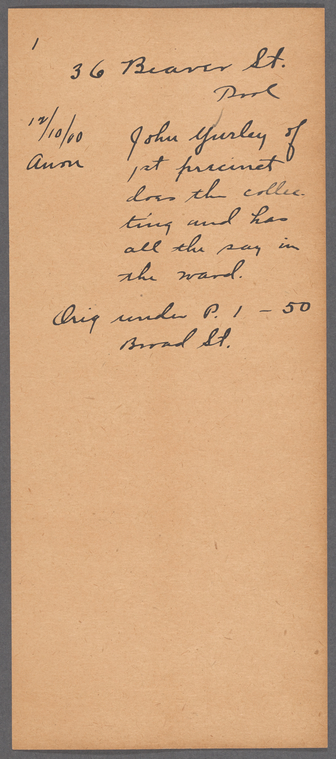 1
36 Beaver St.
Pool
12/10/00
Anon
John Yurley of
1st precinct
does the collec-
ting and has
all the say in
the ward.
Orig under P. 1 - 50
Broad St.